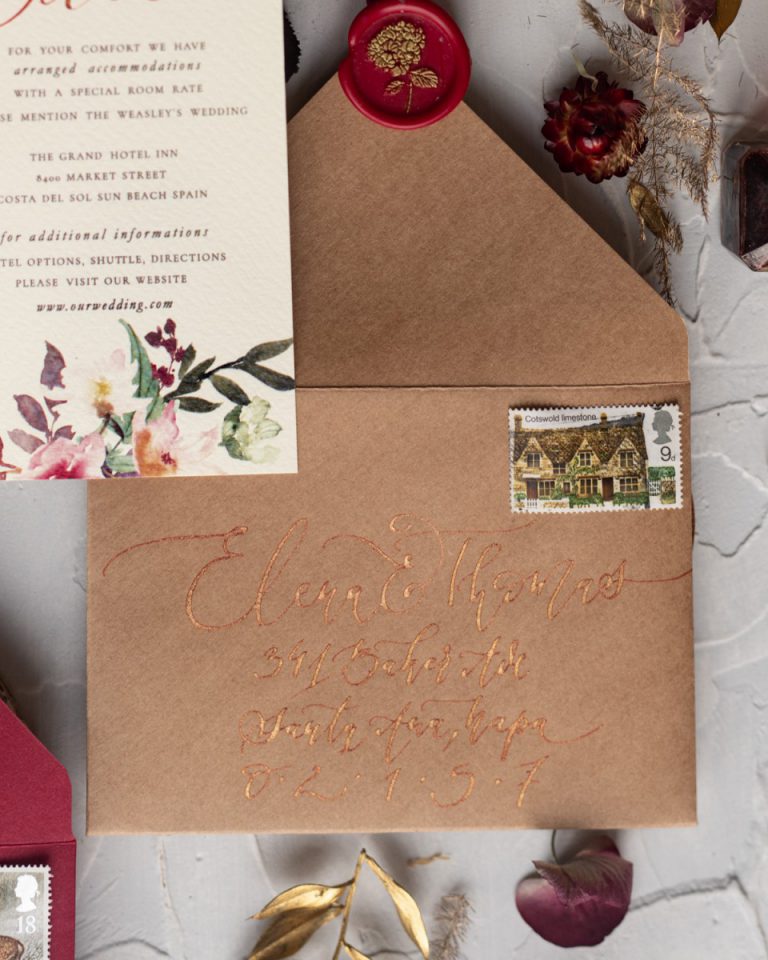 FOR YOUR COMFORT WE HAVE
arranged accommodations
WITH A SPECIAL ROOM RATE
SE MENTION THE WEASLEY'S WEDDING
THE GRAND HOTEL INN
8400 MARKET STREET
COSTA DEL SOL SUN BEACH SPAIN
for additional informations
TEL OPTIONS, SHUTTLE, DIRECTIONS
PLEASE VISIT OUR WEBSITE
www.ourwedding.com
Cotswold limestone
9d
Elena & Thomas
341 Baker Ave
Santa Ana, Napa
0·2·1·5·7
18